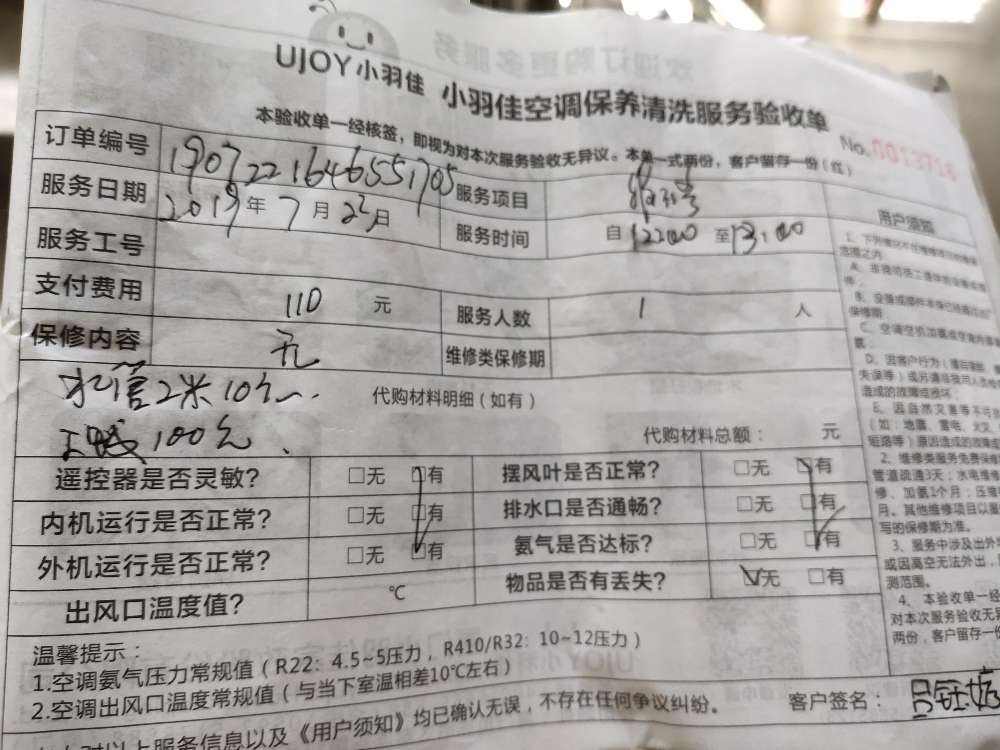 UJOY小羽佳 小羽佳空调保养清洗服务验收单
本验收单一经核签，即视为对本次服务验收无异议。本单一式两份，客户留存一份（红）
No.
订单编号 1907221646551705 服务项目
服务日期 2019年7月23日 服务时间 自 12:00 至 13:00
服务工号
支付费用 110 元 服务人数 1 人
保修内容 无 维修类保修期
水管2米10元
代购材料明细（如有）
工钱100元、
代购材料总额： 元
遥控器是否灵敏? □无 □有 摆风叶是否正常? □无 □有
内机运行是否正常? □无 □有 排水口是否通畅? □无 □有
外机运行是否正常? □无 □有 氨气是否达标? □无 □有
出风口温度值? ℃ 物品是否有丢失? □无 □有
温馨提示：
1.空调氨气压力常规值（R22：4.5~5压力，R410/R32：10~12压力）
2.空调出风口温度常规值（与当下室温相差10℃左右）
对以上服务信息以及《用户须知》均已确认无误，不存在任何争议纠纷。
客户签名：
用户须知
保修期
C. 空调空机加氨或室内
D. 因客户行为
造成的故障或损坏；
E. 因自然灾害等不可
（如：地震、雷电、火灾、
短路等）原因造成的故障
2、维修类服务免费保修
管道疏通3天；水电维
修、加氨1个月；压缩
月。其他维修项目以服
写的保修期为准。
3、服务中涉及出外
或因高空无法外出，
测范围。
4、本验收单一经
对本次服务验收无
两份，客户留存一份